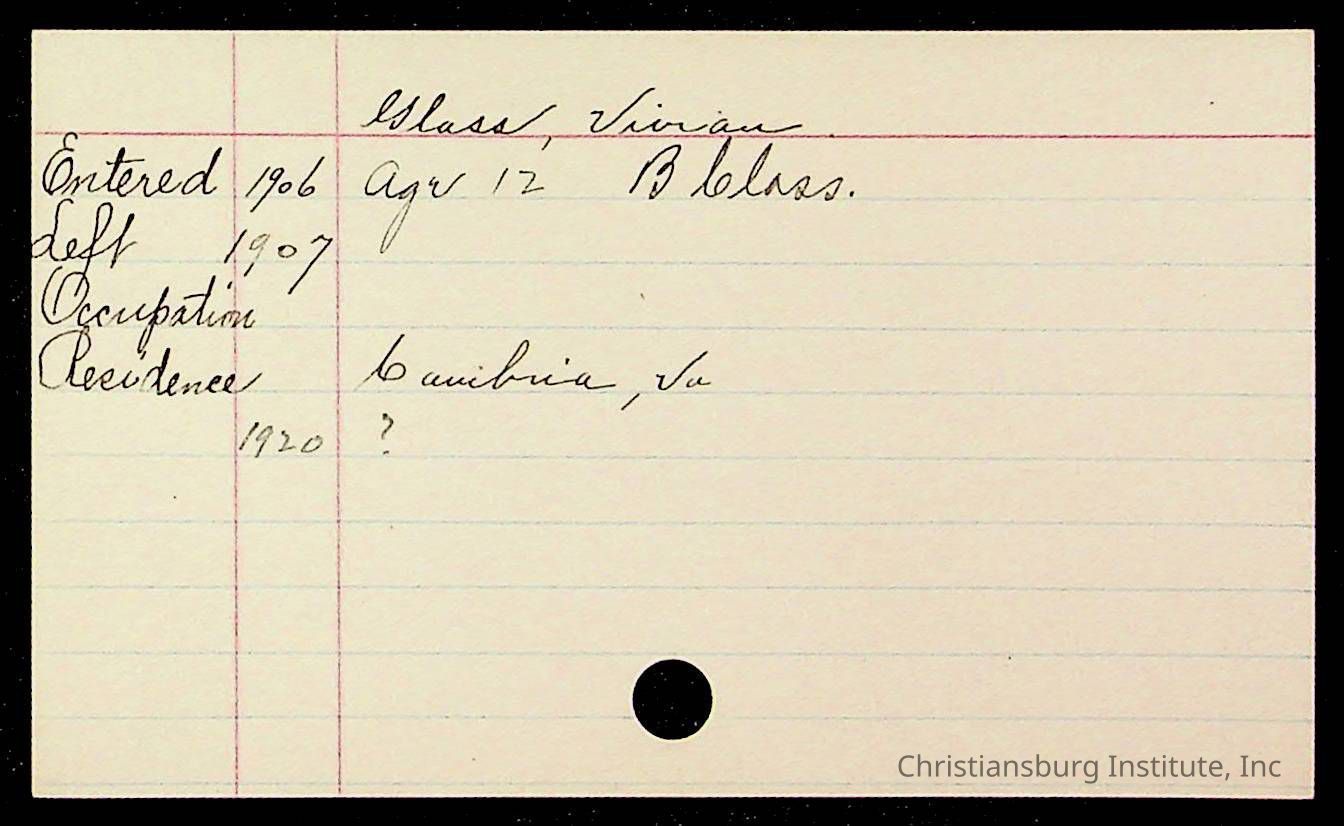 Glass, Vivian.
Entered 1906 Age 12 B Class.
Left 1907
Occupation
Residence Cambria, Va
1920 ?
Christiansburg Institute, Inc